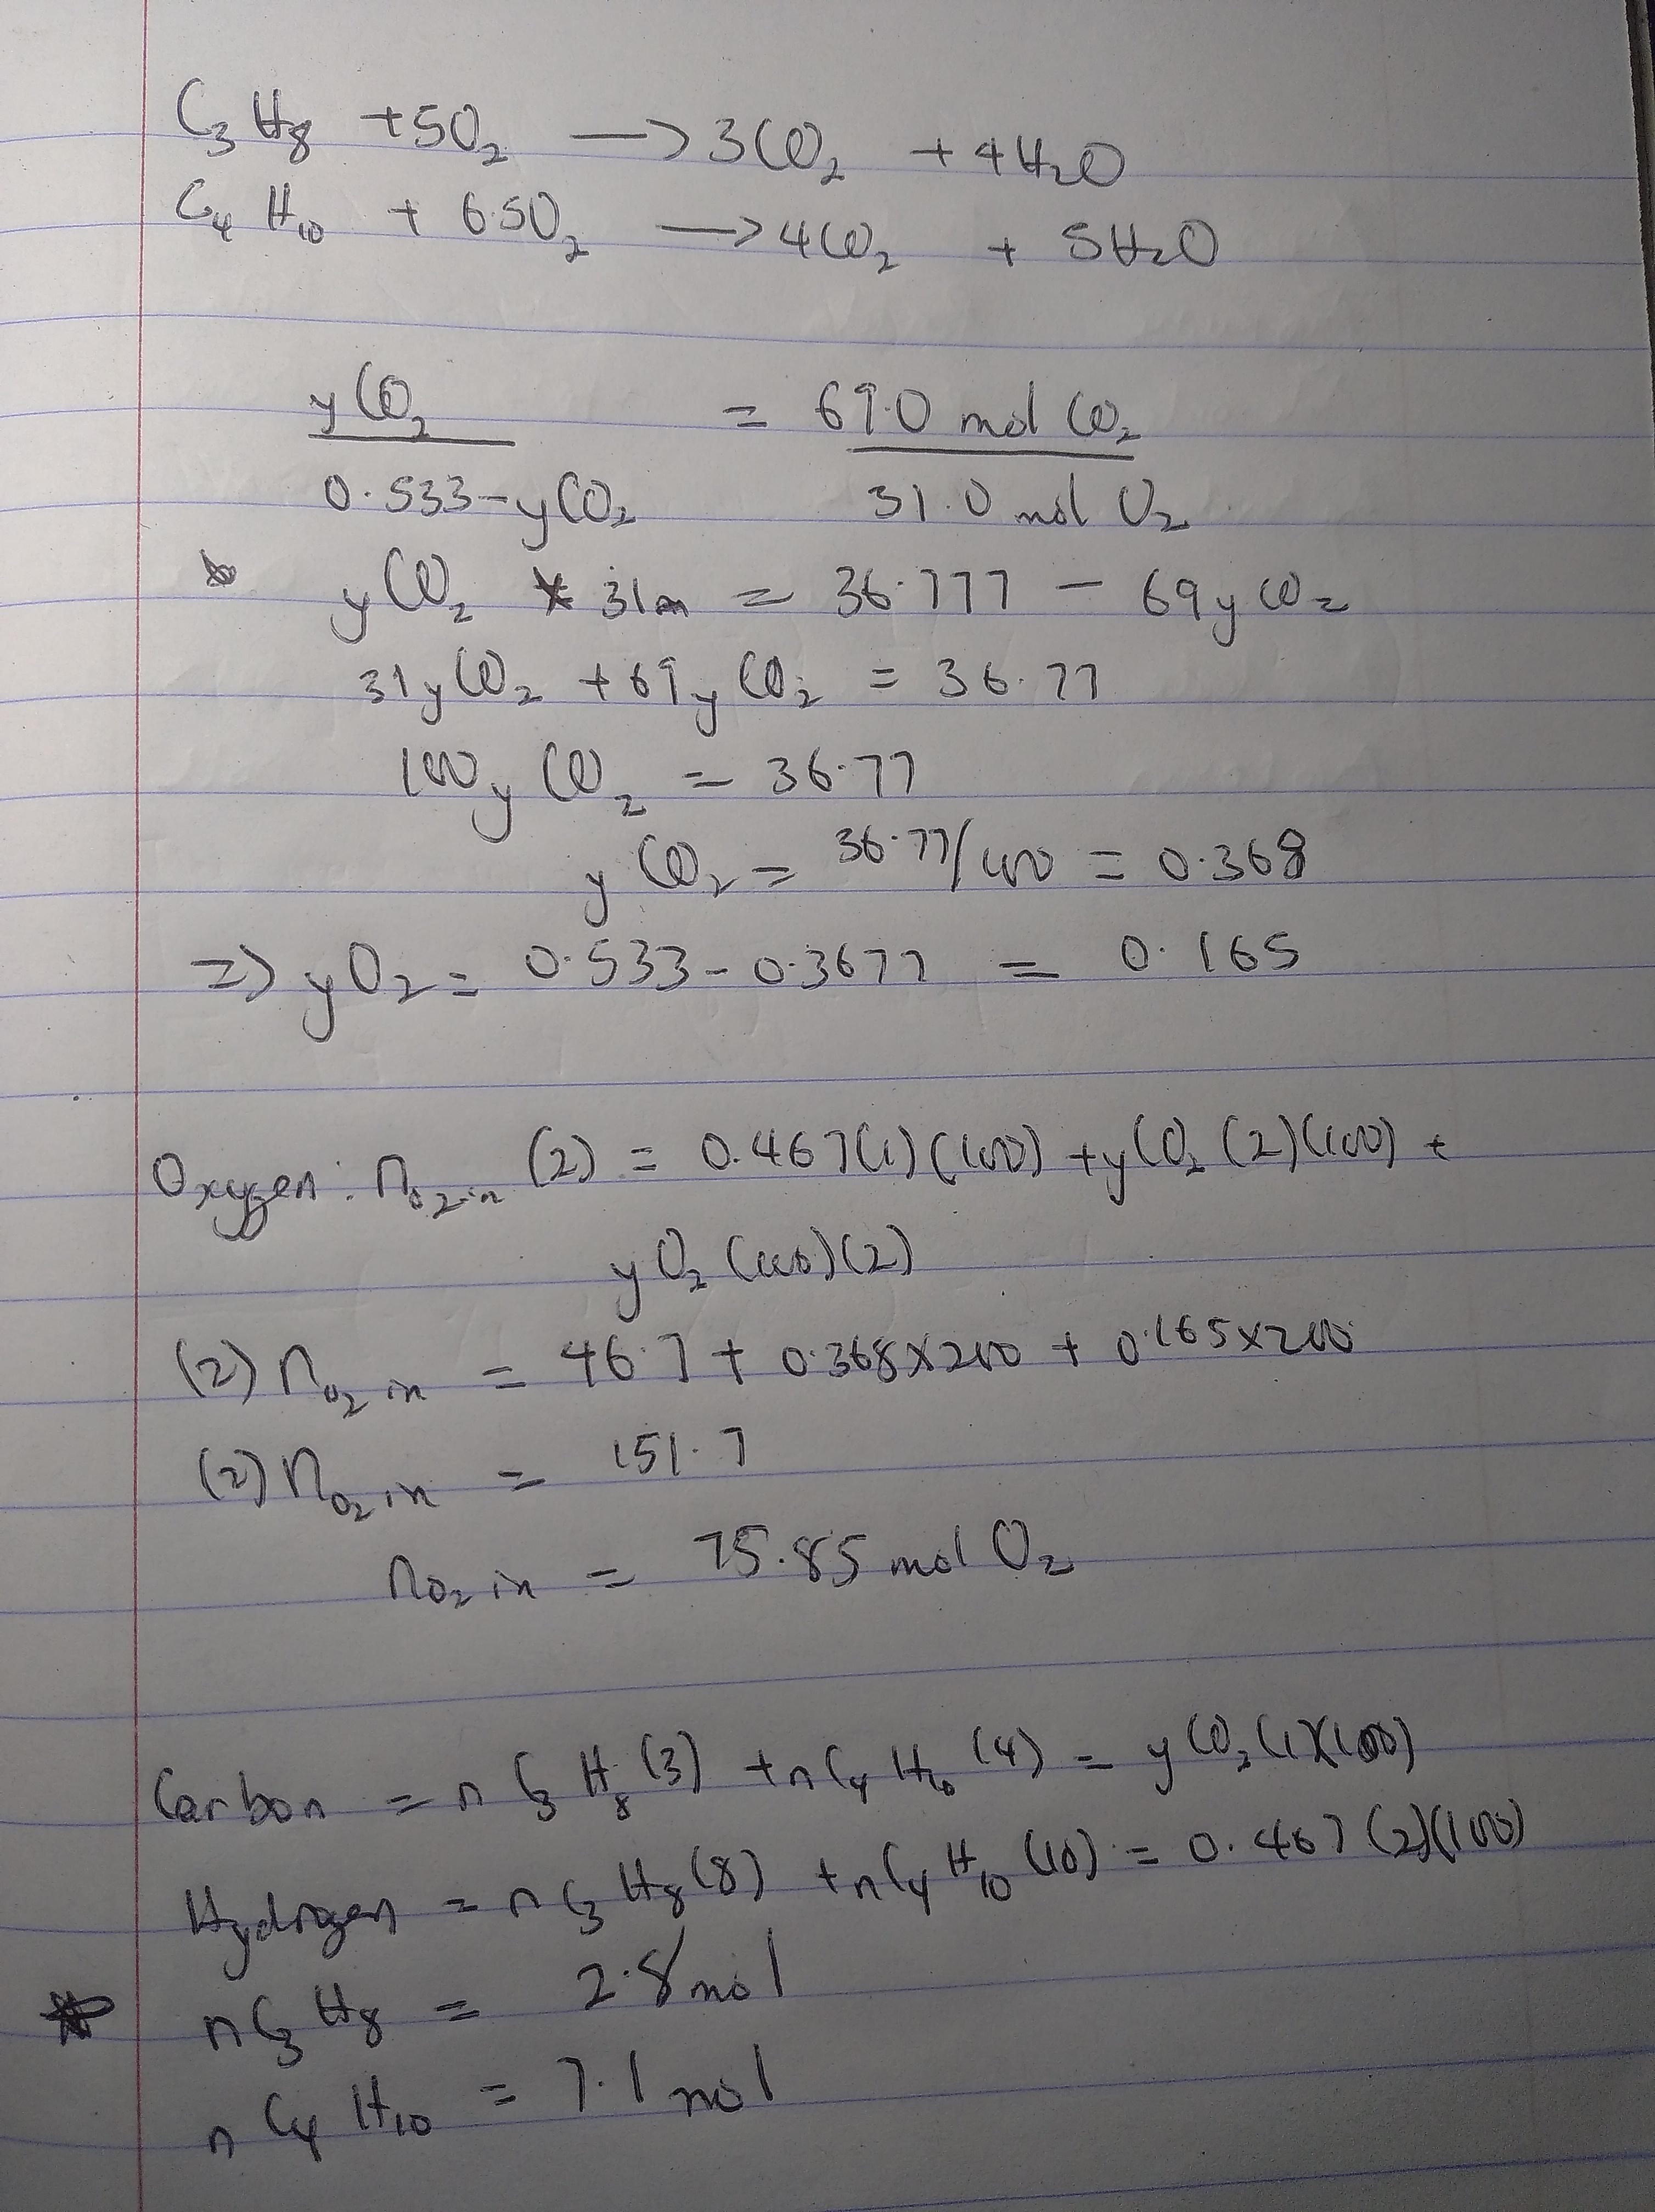 C₃H₈ + 5O₂ → 3CO₂ + 4H₂O
C₄H₁₀ + 6.5O₂ → 4CO₂ + 5H₂O
yCO₂ / 0.533-yCO₂ = 69.0 mol CO₂ / 31.0 mol O₂
yCO₂ * 31 = 36.777 - 69yCO₂
31yCO₂ + 69yCO₂ = 36.77
100yCO₂ = 36.77
yCO₂ = 36.77/100 = 0.368
=> yO₂ = 0.533-0.3677 = 0.165
Oxygen: nO₂in (2) = 0.467(1)(100) + yCO₂(2)(100) +
yO₂(100)(2)
(2)nO₂in = 46.7 + 0.368×200 + 0.165×200
(2)nO₂in = 151.7
nO₂in = 75.85 mol O₂
Carbon = nC₃H₈(3) + nC₄H₁₀(4) = yCO₂(1)(100)
Hydrogen = nC₃H₈(8) + nC₄H₁₀(10) = 0.467(2)(100)
nC₃H₈ = 2.8 mol
nC₄H₁₀ = 7.1 mol